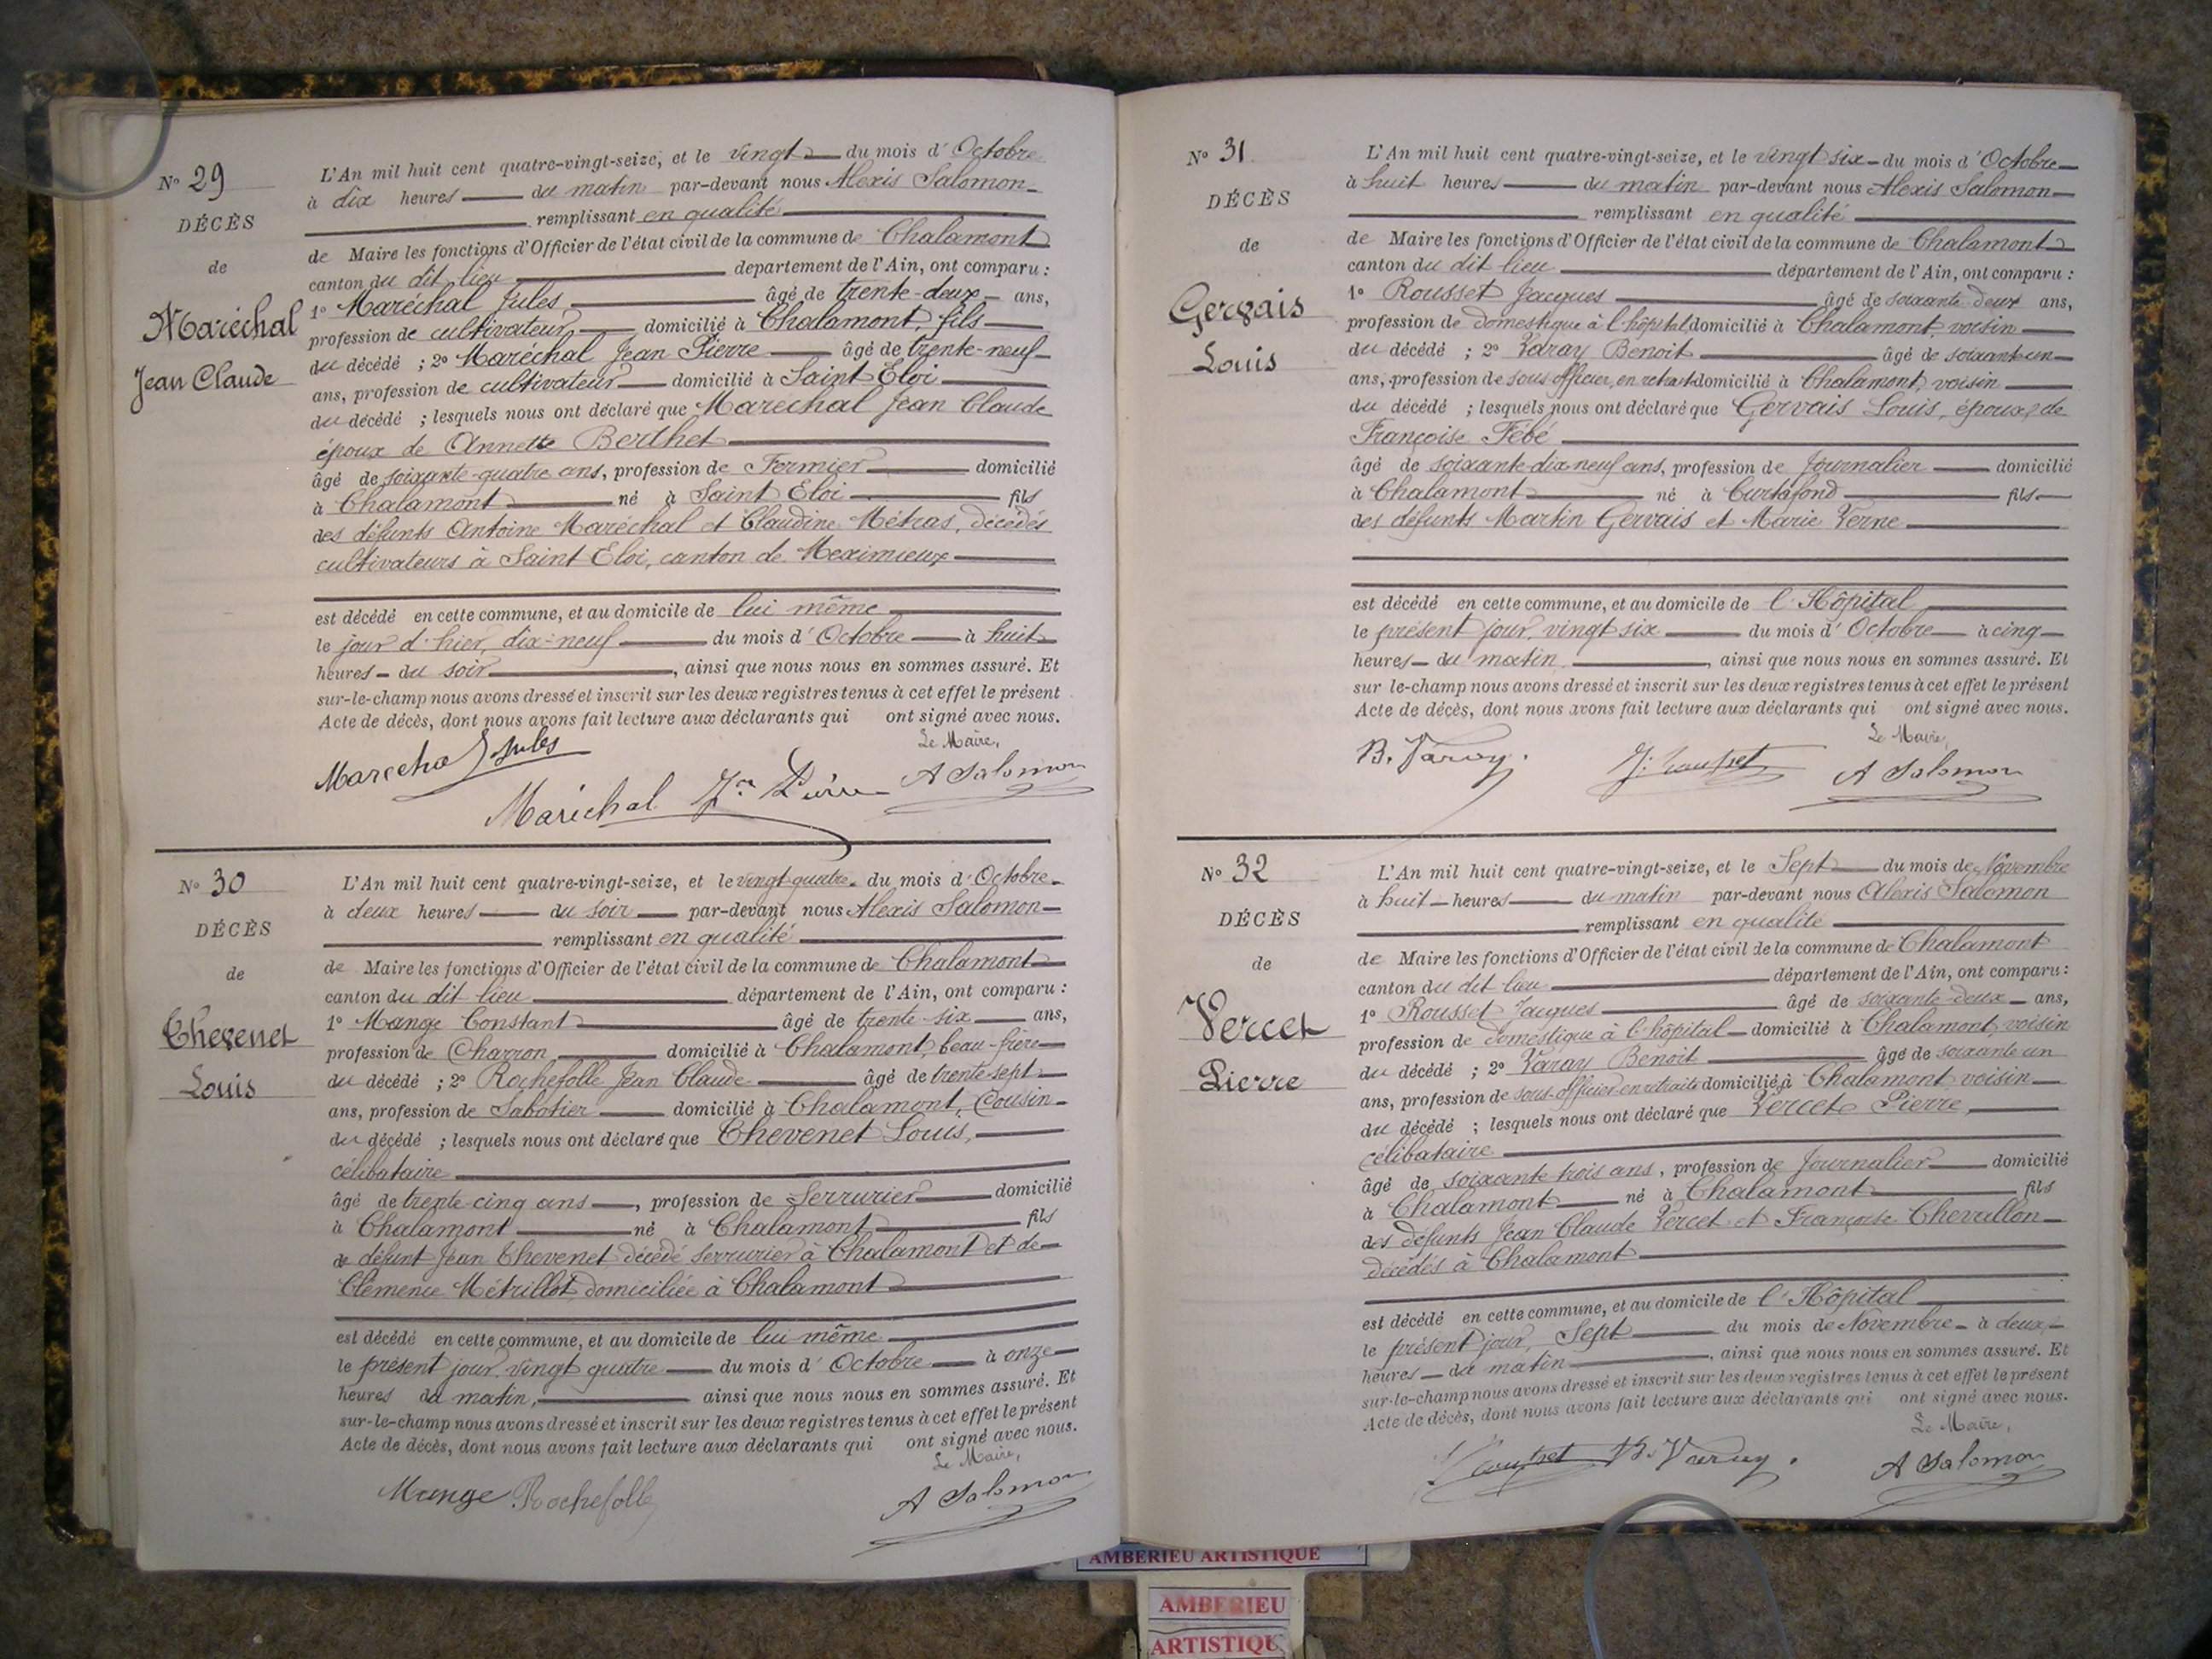 Nº 29
DÉCÈS
de
Maréchal
Jean Claude
L'An mil huit cent quatre-vingt-seize, et le vingt du mois d'Octobre
à dix heures du matin par-devant nous Alexis Salomon
remplissant en qualité
de Maire les fonctions d'Officier de l'état civil de la commune de Chalamont
canton du dit lieu departement de l'Ain, ont comparu :
1º Maréchal Jules âgé de trente-deux ans,
profession de cultivateur domicilié à Chalamont, fils
du décédé ; 2º Maréchal Jean Pierre âgé de trente-neuf
ans, profession de cultivateur domicilié à Saint Eloi
du décédé ; lesquels nous ont déclaré que Maréchal Jean Claude
époux de Annette Berthet
âgé de soixante-quatre ans, profession de Fermier domicilié
à Chalamont né à Saint Eloi fils
des défunts Antoine Maréchal et Claudine Métras, décédés
cultivateurs à Saint Eloi, canton de Meximieux
est décédé en cette commune, et au domicile de lui même
le jour d'hier, dix-neuf du mois d'Octobre à huit
heures du soir, ainsi que nous nous en sommes assuré. Et
sur-le-champ nous avons dressé et inscrit sur les deux registres tenus à cet effet le présent
Acte de décès, dont nous avons fait lecture aux déclarants qui ont signé avec nous.
Le Maire,
Marechal Jules
Maréchal Jn Pierre A Salomon
Nº 30
DÉCÈS
de
Chevenet
Louis
L'An mil huit cent quatre-vingt-seize, et le vingt-quatre du mois d'Octobre
à deux heures du soir par-devant nous Alexis Salomon
remplissant en qualité
de Maire les fonctions d'Officier de l'état civil de la commune de Chalamont
canton du dit lieu département de l'Ain, ont comparu :
1º Mange Constant âgé de trente-six ans,
profession de Charron domicilié à Chalamont, beau-frère
du décédé ; 2º Rochefolle Jean Claude âgé de trente-sept
ans, profession de Sabotier domicilié à Chalamont, Cousin
du décédé ; lesquels nous ont déclaré que Chevenet Louis,
célibataire
âgé de trente-cinq ans, profession de Serrurier domicilié
à Chalamont né à Chalamont fils
de défunt Jean Chevenet décédé serrurier à Chalamont et de
Clémence Métrillot domiciliée à Chalamont
est décédé en cette commune, et au domicile de lui même
le présent jour vingt quatre du mois d'Octobre à onze
heures du matin, ainsi que nous nous en sommes assuré. Et
sur-le-champ nous avons dressé et inscrit sur les deux registres tenus à cet effet le présent
Acte de décès, dont nous avons fait lecture aux déclarants qui ont signé avec nous.
Le Maire,
Mange Rochefolle A Salomon
Nº 31
DÉCÈS
de
Gervais
Louis
L'An mil huit cent quatre-vingt-seize, et le vingt six du mois d'Octobre
à huit heures du matin par-devant nous Alexis Salomon
remplissant en qualité
de Maire les fonctions d'Officier de l'état civil de la commune de Chalamont
canton du dit lieu département de l'Ain, ont comparu :
1º Rousset Jacques âgé de soixante deux ans,
profession de domestique à l'hôpital domicilié à Chalamont, voisin
du décédé ; 2º Varay Benoit âgé de soixante un
ans, profession de sous officier en retraite domicilié à Chalamont, voisin
du décédé ; lesquels nous ont déclaré que Gervais Louis, époux de
Françoise Fébé
âgé de soixante-dix-neuf ans, profession de Journalier domicilié
à Chalamont né à Curtafond fils
des défunts Martin Gervais et Marie Verne
est décédé en cette commune, et au domicile de l'Hôpital
le présent jour, vingt six du mois d'Octobre à cinq
heures du matin, ainsi que nous nous en sommes assuré. Et
sur le-champ nous avons dressé et inscrit sur les deux registres tenus à cet effet le présent
Acte de décès, dont nous avons fait lecture aux déclarants qui ont signé avec nous.
Le Maire,
B. Varay. J. Rousset A Salomon
Nº 32
DÉCÈS
de
Vercet
Pierre
L'An mil huit cent quatre-vingt-seize, et le Sept du mois de Novembre
à huit heures du matin par-devant nous Alexis Salomon
remplissant en qualité
de Maire les fonctions d'Officier de l'état civil de la commune de Chalamont
canton du dit lieu département de l'Ain, ont comparu :
1º Rousset Jacques âgé de soixante-deux ans,
profession de domestique à l'hôpital domicilié à Chalamont, voisin
du décédé ; 2º Varay Benoit âgé de soixante un
ans, profession de sous-officier en retraite domicilié à Chalamont voisin
du décédé ; lesquels nous ont déclaré que Vercet Pierre,
célibataire
âgé de soixante trois ans, profession de Journalier domicilié
à Chalamont né à Chalamont fils
des défunts Jean Claude Vercet et Françoise Chevallon
décédés à Chalamont
est décédé en cette commune, et au domicile de l'Hôpital
le présent jour, Sept du mois de Novembre à deux
heures du matin, ainsi que nous nous en sommes assuré. Et
sur-le-champ nous avons dressé et inscrit sur les deux registres tenus à cet effet le présent
Acte de décès, dont nous avons fait lecture aux déclarants qui ont signé avec nous.
Le Maire,
Rousset B. Varay. A Salomon
AMBERIEU ARTISTIQUE
AMBERIEU
ARTISTIQU